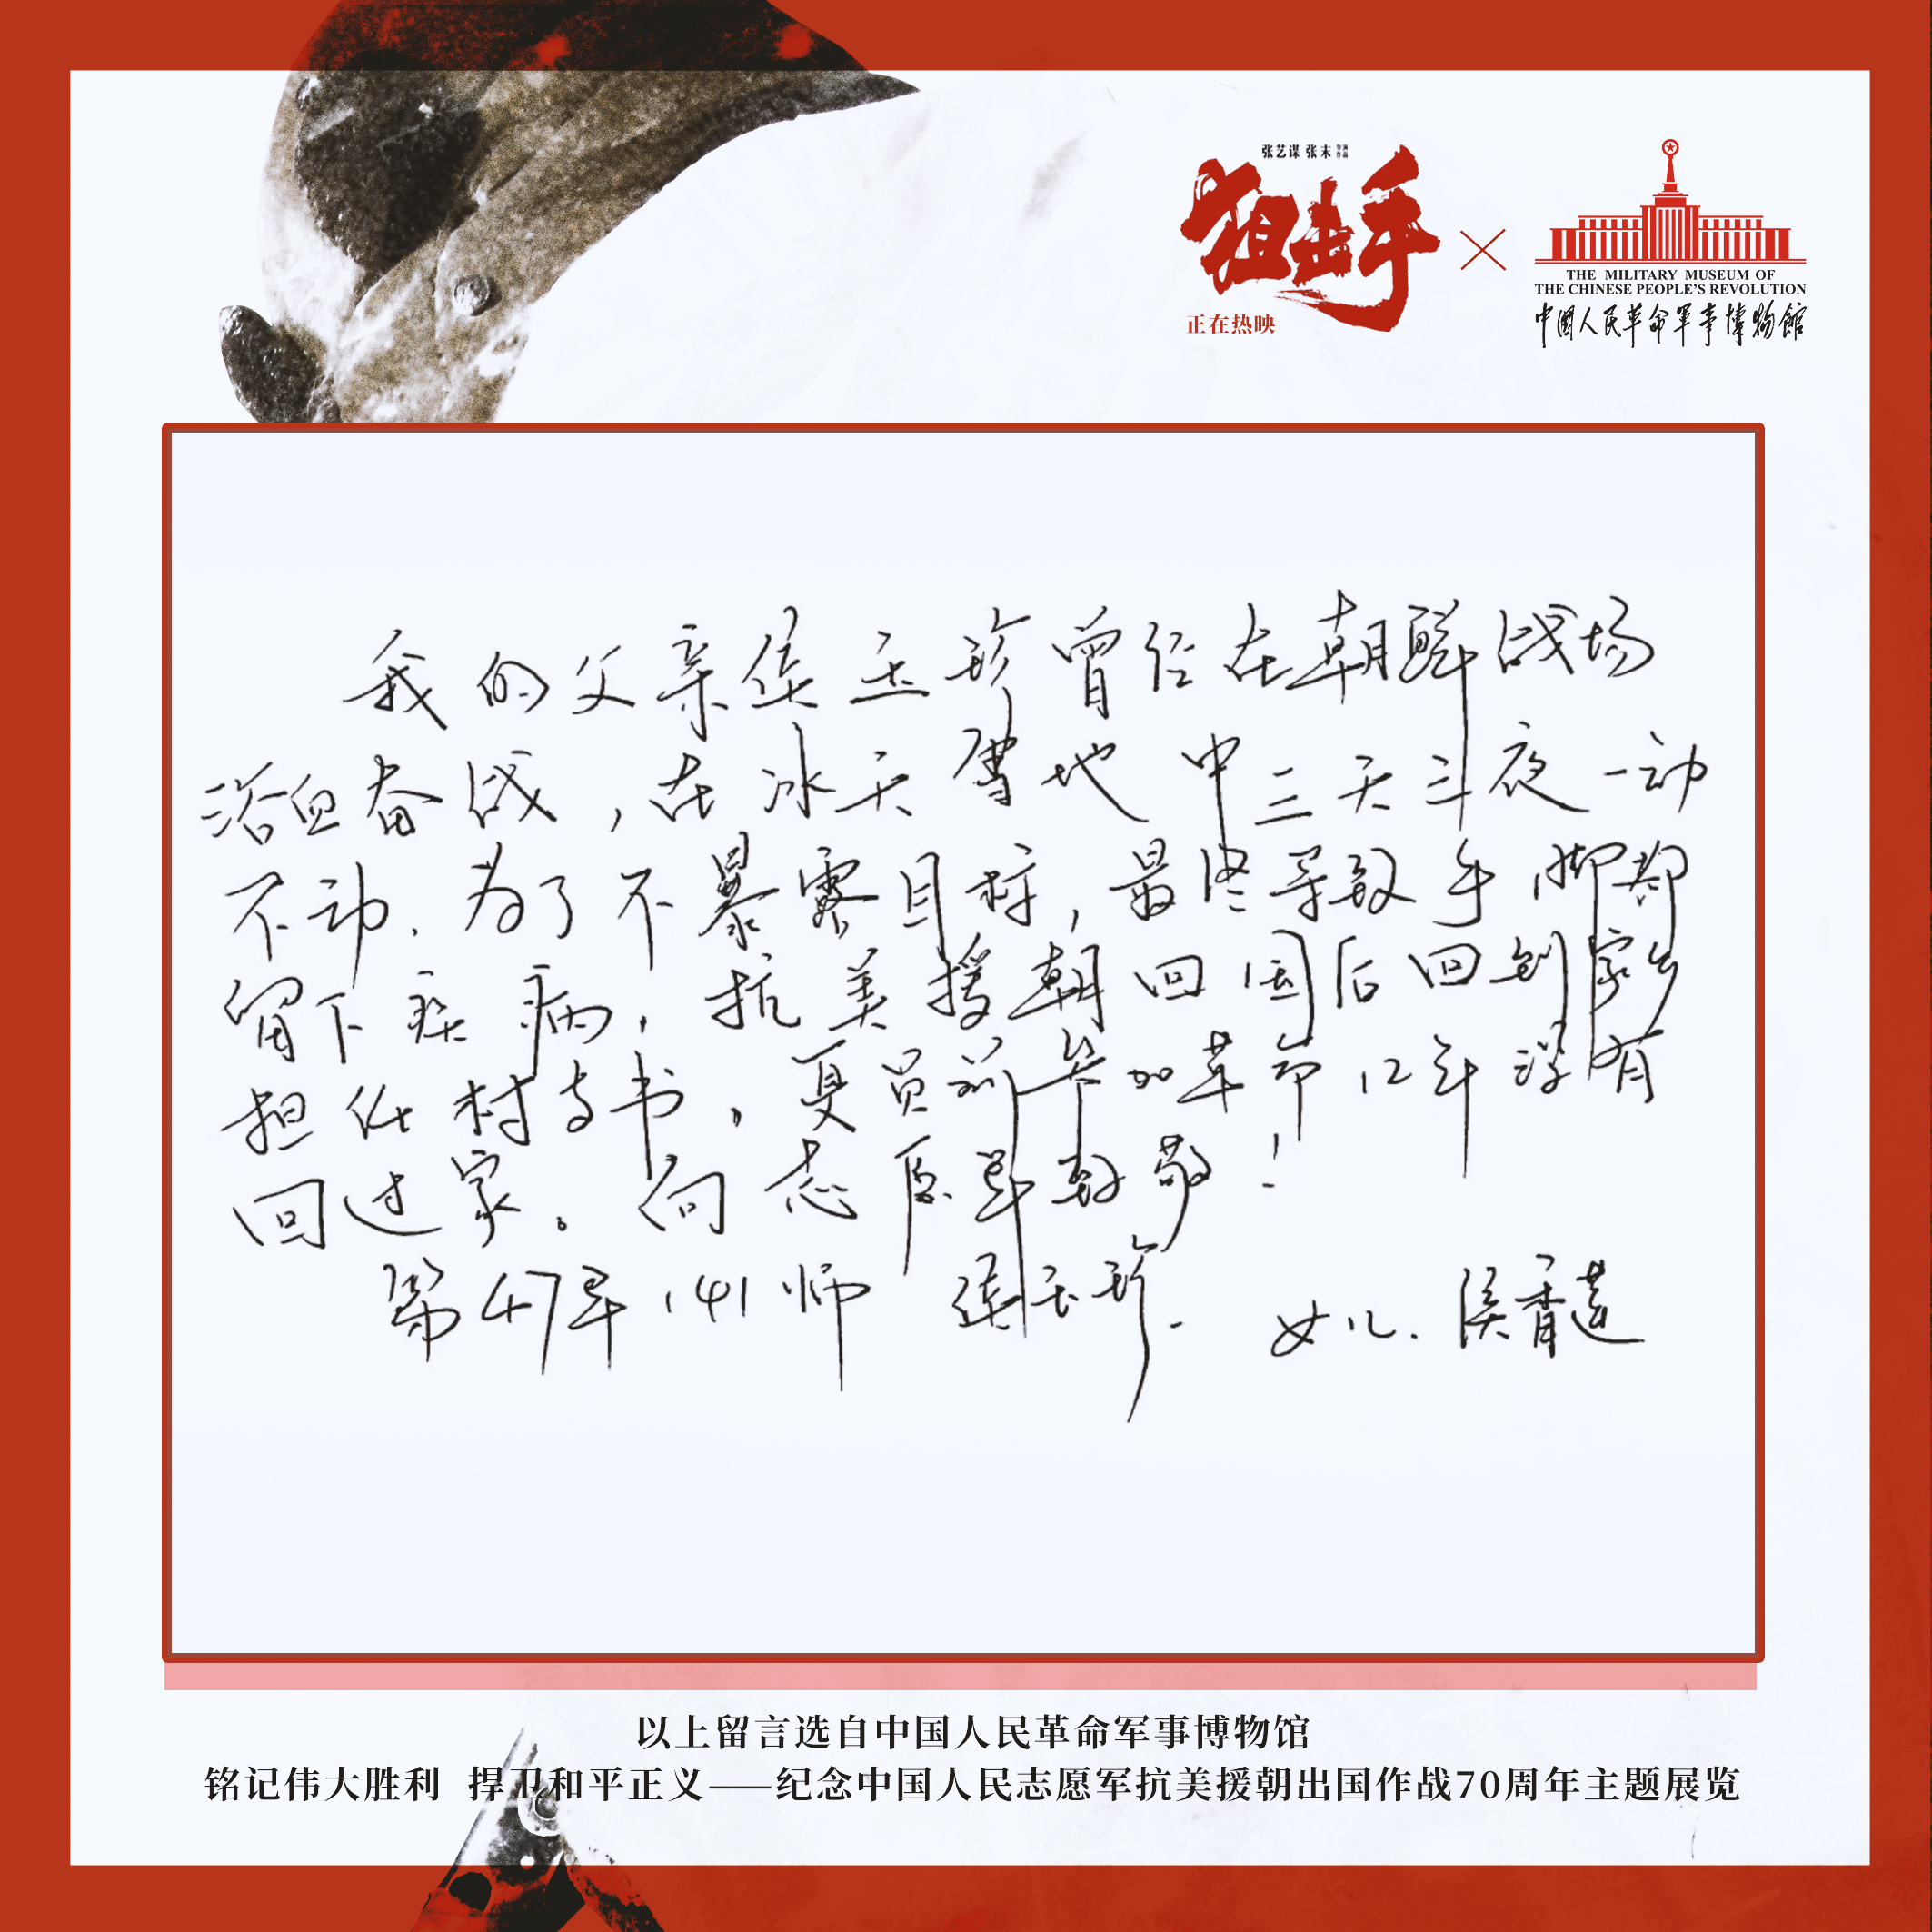 张艺谋 张末 导演作品
狙击手
正在热映
THE MILITARY MUSEUM OF
THE CHINESE PEOPLE'S REVOLUTION
中國人民革命軍事博物館
我的父亲侯玉珍曾经在朝鲜战场
浴血奋战,在冰天雪地中三天三夜一动
不动.为了不暴露目标,最终导致手脚都
留下疾病,抗美援朝回国后回到家乡
担任村支书,复员前参加革命12年没有
回过家。向志愿军致敬!
第47军141师 侯玉珍.
女儿.侯香莲
以上留言选自中国人民革命军事博物馆
铭记伟大胜利 捍卫和平正义——纪念中国人民志愿军抗美援朝出国作战70周年主题展览